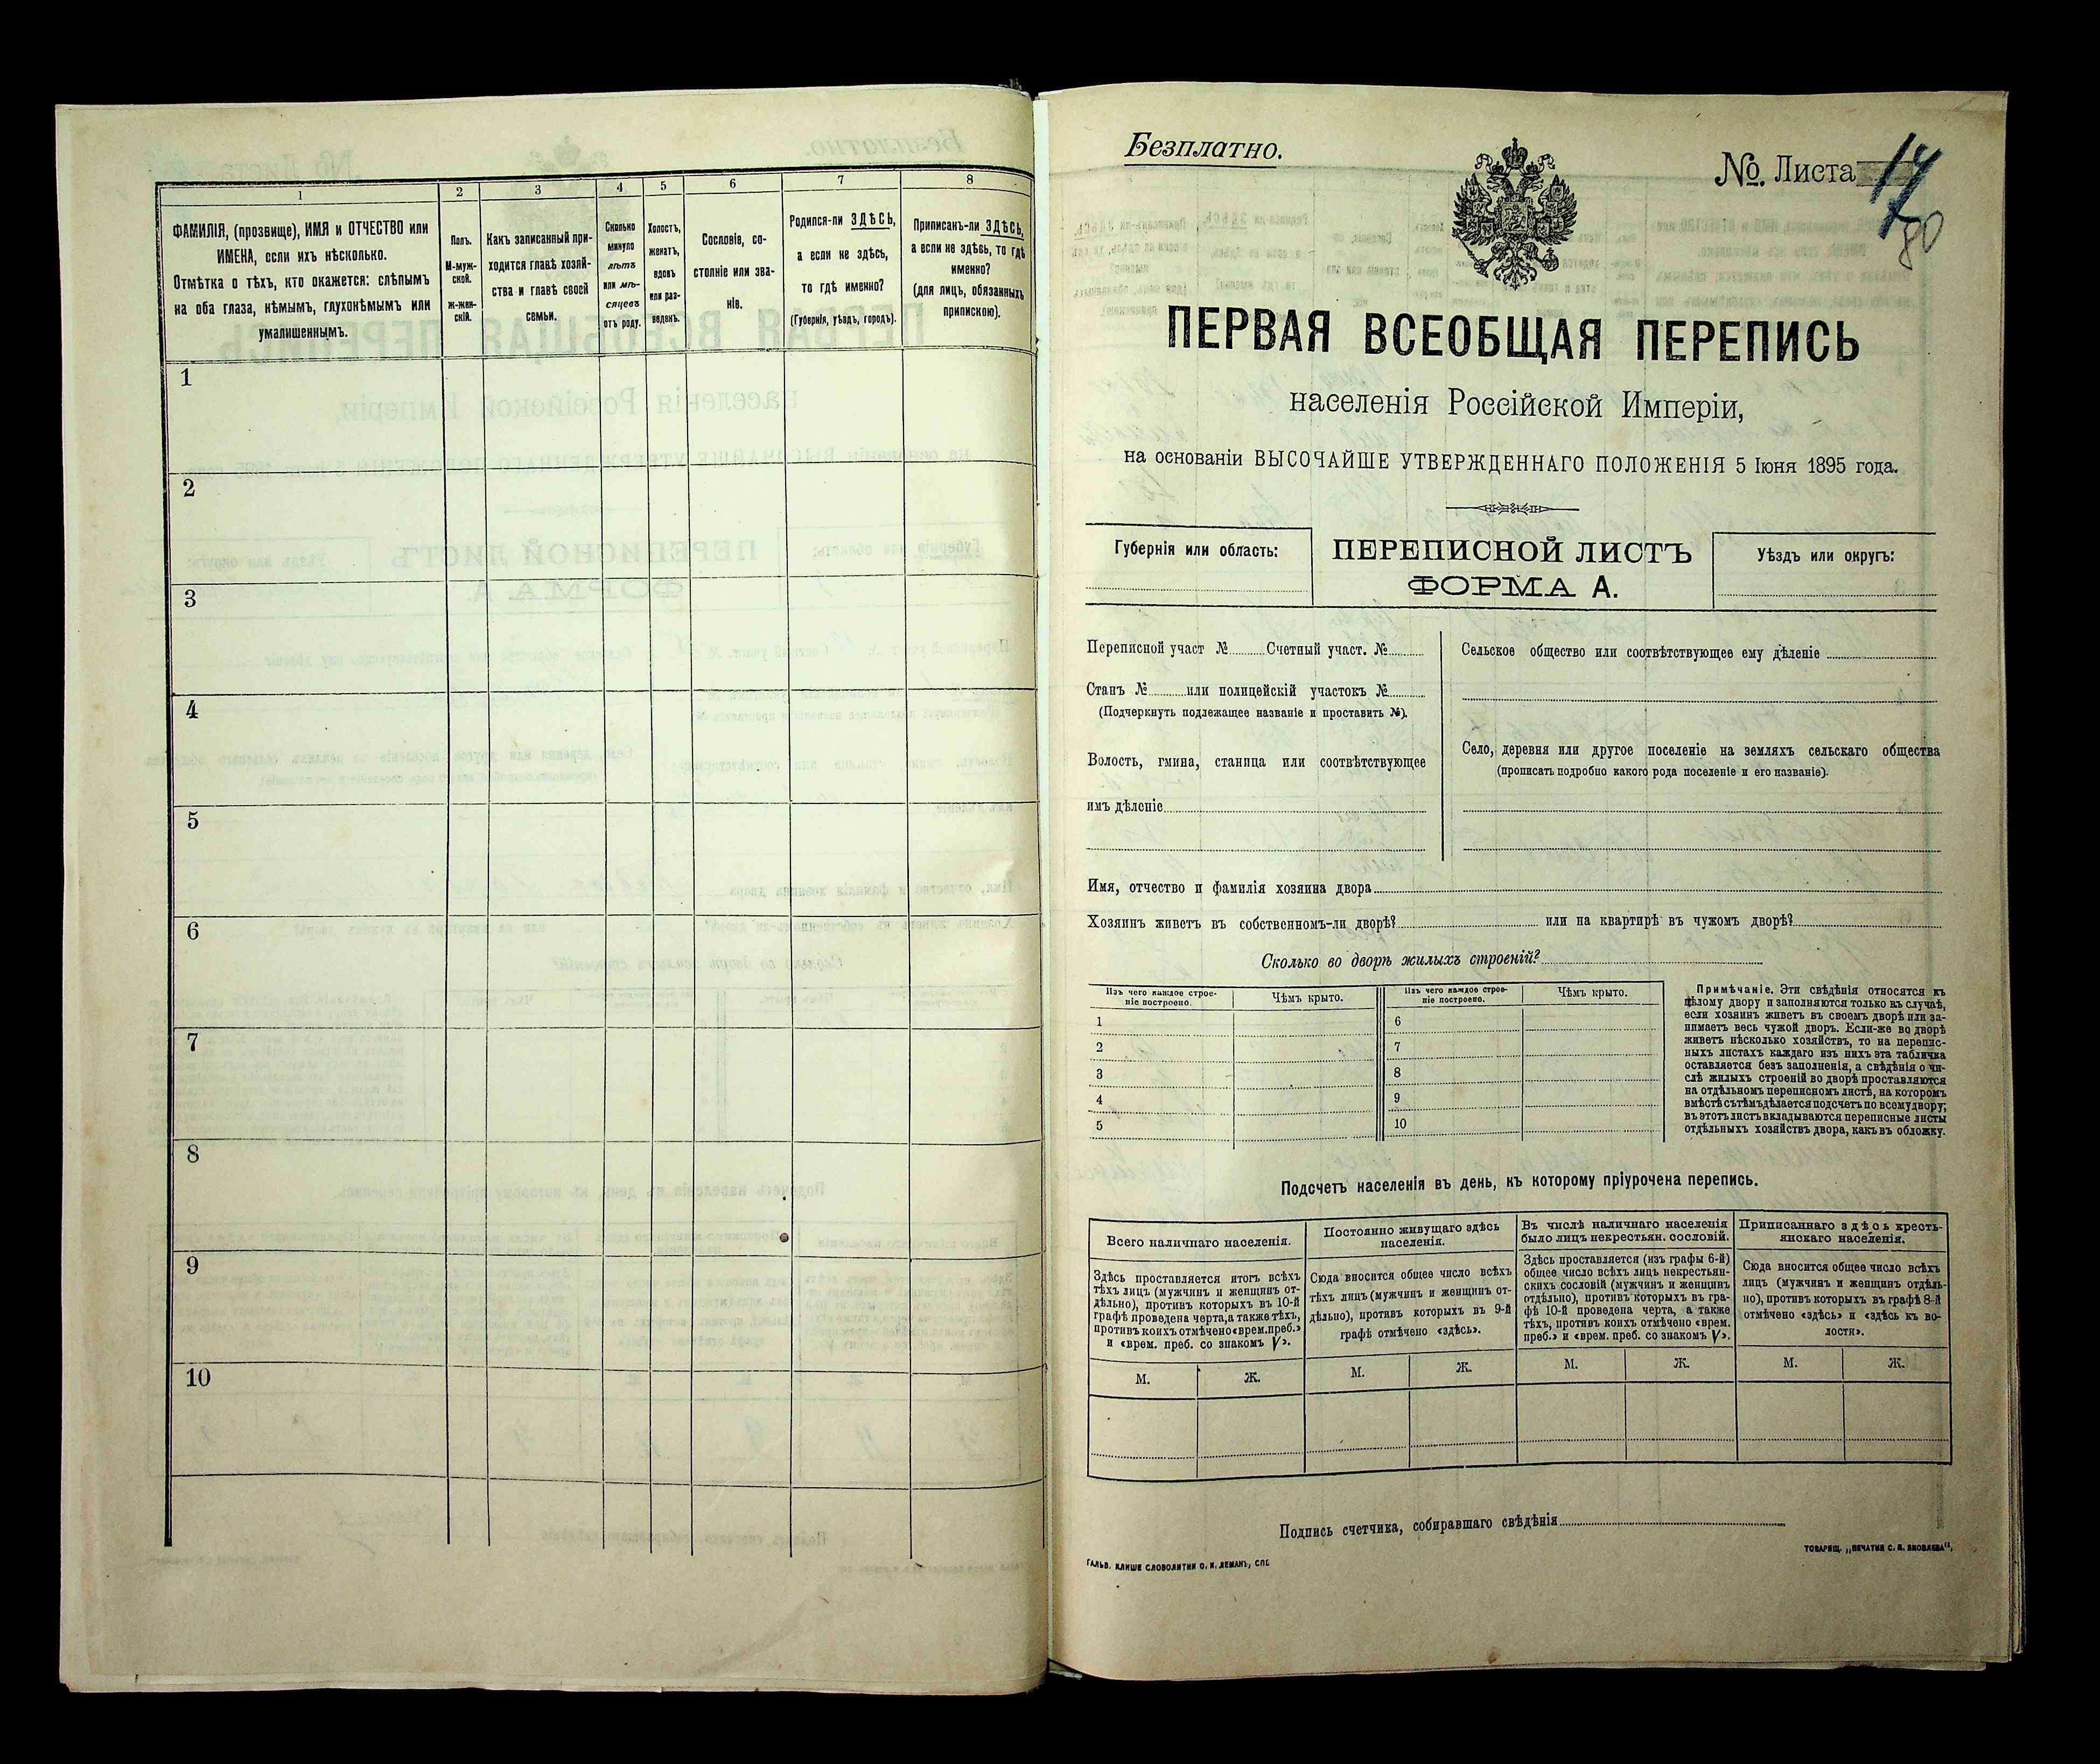 1
2
3
4
5
6
7
8
ФАМИЛІЯ, (прозвище), ИМЯ и ОТЧЕСТВО или
ИМЕНА, если ихъ нѣсколько.
Отмѣтка о тѣхъ, кто окажется: слѣпымъ
на оба глаза, нѣмымъ, глухонѣмымъ или
умалишеннымъ.
Полъ.
М-муж-
ской.
Ж-жен-
скій.
Какъ записанный при-
ходится главѣ хозяй-
ства и главѣ своей
семьи.
Сколько
минуло
лѣтъ
или мѣ-
сяцевъ
отъ роду.
Холостъ,
женатъ,
вдовъ
или раз-
веденъ.
Сословіе, со-
стояніе или зва-
ніе.
Родился-ли ЗДѢСЬ,
а если не здѣсь,
то гдѣ именно?
(Губернія, уѣздъ, городъ).
Приписанъ-ли ЗДѢСЬ,
а если не здѣсь, то гдѣ
именно?
(для лицъ, обязанныхъ
припискою).
1
2
3
4
5
6
7
8
9
10
Безплатно.
№. Листа
80
ПЕРВАЯ ВСЕОБЩАЯ ПЕРЕПИСЬ
населенія Россійской Имперіи,
на основаніи ВЫСОЧАЙШЕ УТВЕРЖДЕННАГО ПОЛОЖЕНІЯ 5 Іюня 1895 года.
Губернія или область:
ПЕРЕПИСНОЙ ЛИСТЪ
ФОРМА А.
Уѣздъ или округъ:
Переписной участ № Счетный участ. №
Станъ № или полицейскій участокъ №
(Подчеркнуть подлежащее названіе и проставить №).
Волость, гмина, станица или соотвѣтствующее
имъ дѣленіе
Сельское общество или соотвѣтствующее ему дѣленіе
Село, деревня или другое поселеніе на земляхъ сельскаго общества
(прописать подробно какого рода поселеніе и его названіе).
Имя, отчество и фамилія хозяина двора
Хозяинъ живетъ въ собственномъ-ли дворѣ? или на квартирѣ въ чужомъ дворѣ?
Сколько во дворѣ жилыхъ строеній?
Изъ чего каждое строе-
ніе построено.
Чѣмъ крыто.
Изъ чего каждое строе-
ніе построено.
Чѣмъ крыто.
1
2
3
4
5
6
7
8
9
10
Примѣчаніе. Эти свѣдѣнія относятся къ
цѣлому двору и заполняются только въ случаѣ,
если хозяинъ живетъ въ своемъ дворѣ или за-
нимаетъ весь чужой дворъ. Если-же во дворѣ
живетъ нѣсколько хозяйствъ, то на перепис-
ныхъ листахъ каждаго изъ нихъ эта табличка
оставляется безъ заполненія, а свѣдѣнія о чи-
слѣ жилыхъ строеній во дворѣ проставляются
на отдѣльномъ переписномъ листѣ, на которомъ
вмѣстѣ съ тѣмъ дѣлается подсчетъ по всему двору;
въ этотъ листъ вкладываются переписные листы
отдѣльныхъ хозяйствъ двора, какъ въ обложку.
Подсчетъ населенія въ день, къ которому пріурочена перепись.
Всего наличнаго населенія.
Постоянно живущаго здѣсь
населенія.
Въ числѣ наличнаго населенія
было лицъ некрестьян. сословій.
Приписаннаго здѣсь кресть-
янскаго населенія.
Здѣсь проставляется итогъ всѣхъ
тѣхъ лицъ (мужчинъ и женщинъ от-
дѣльно), противъ которыхъ въ 10-й
графѣ проведена черта, а также тѣхъ,
противъ коихъ отмѣчено «врем. преб.»
и «врем. преб. со знакомъ V».
Сюда вносится общее число всѣхъ
тѣхъ лицъ (мужчинъ и женщинъ от-
дѣльно), противъ которыхъ въ 9-й
графѣ отмѣчено «здѣсь».
Здѣсь проставляется (изъ графы 6-й)
общее число всѣхъ лицъ некрестьян-
скихъ сословій (мужчинъ и женщинъ
отдѣльно), противъ которыхъ въ гра-
фѣ 10-й проведена черта, а также
тѣхъ, противъ коихъ отмѣчено «врем.
преб.» и «врем. преб. со знакомъ V».
Сюда вносится общее число всѣхъ
лицъ (мужчинъ и женщинъ отдѣль-
но), противъ которыхъ въ графѣ 8-й
отмѣчено «здѣсь» и «здѣсь къ во-
лости».
М.
Ж.
М.
Ж.
М.
Ж.
М.
Ж.
Подпись счетчика, собиравшаго свѣдѣнія
ГАЛЬВ. КЛИШЕ СЛОВОЛИТНИ О. И. ЛЕМАНЪ, СПБ.
ТОВАРИЩ. „ПЕЧАТНЯ С. П. ЯКОВЛЕВА“,